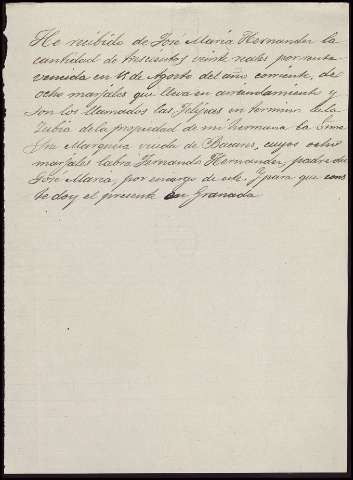 He recibido de José María Hernandez la
cantidad de trescientos veinte reales por renta
vencida en 15 de Agosto del año corriente, de
ocho marjales que lleva en arrendamiento y
son los llamados las en termino de la
Zubia de la propiedad de mi hermana la Exma
Sra Marquesa viuda de Bacares, cuyos ocho
marjales labra Fernando Hernandez, padre de
José María, por encargo de este. Y para que cons
te doy el presente en Granada